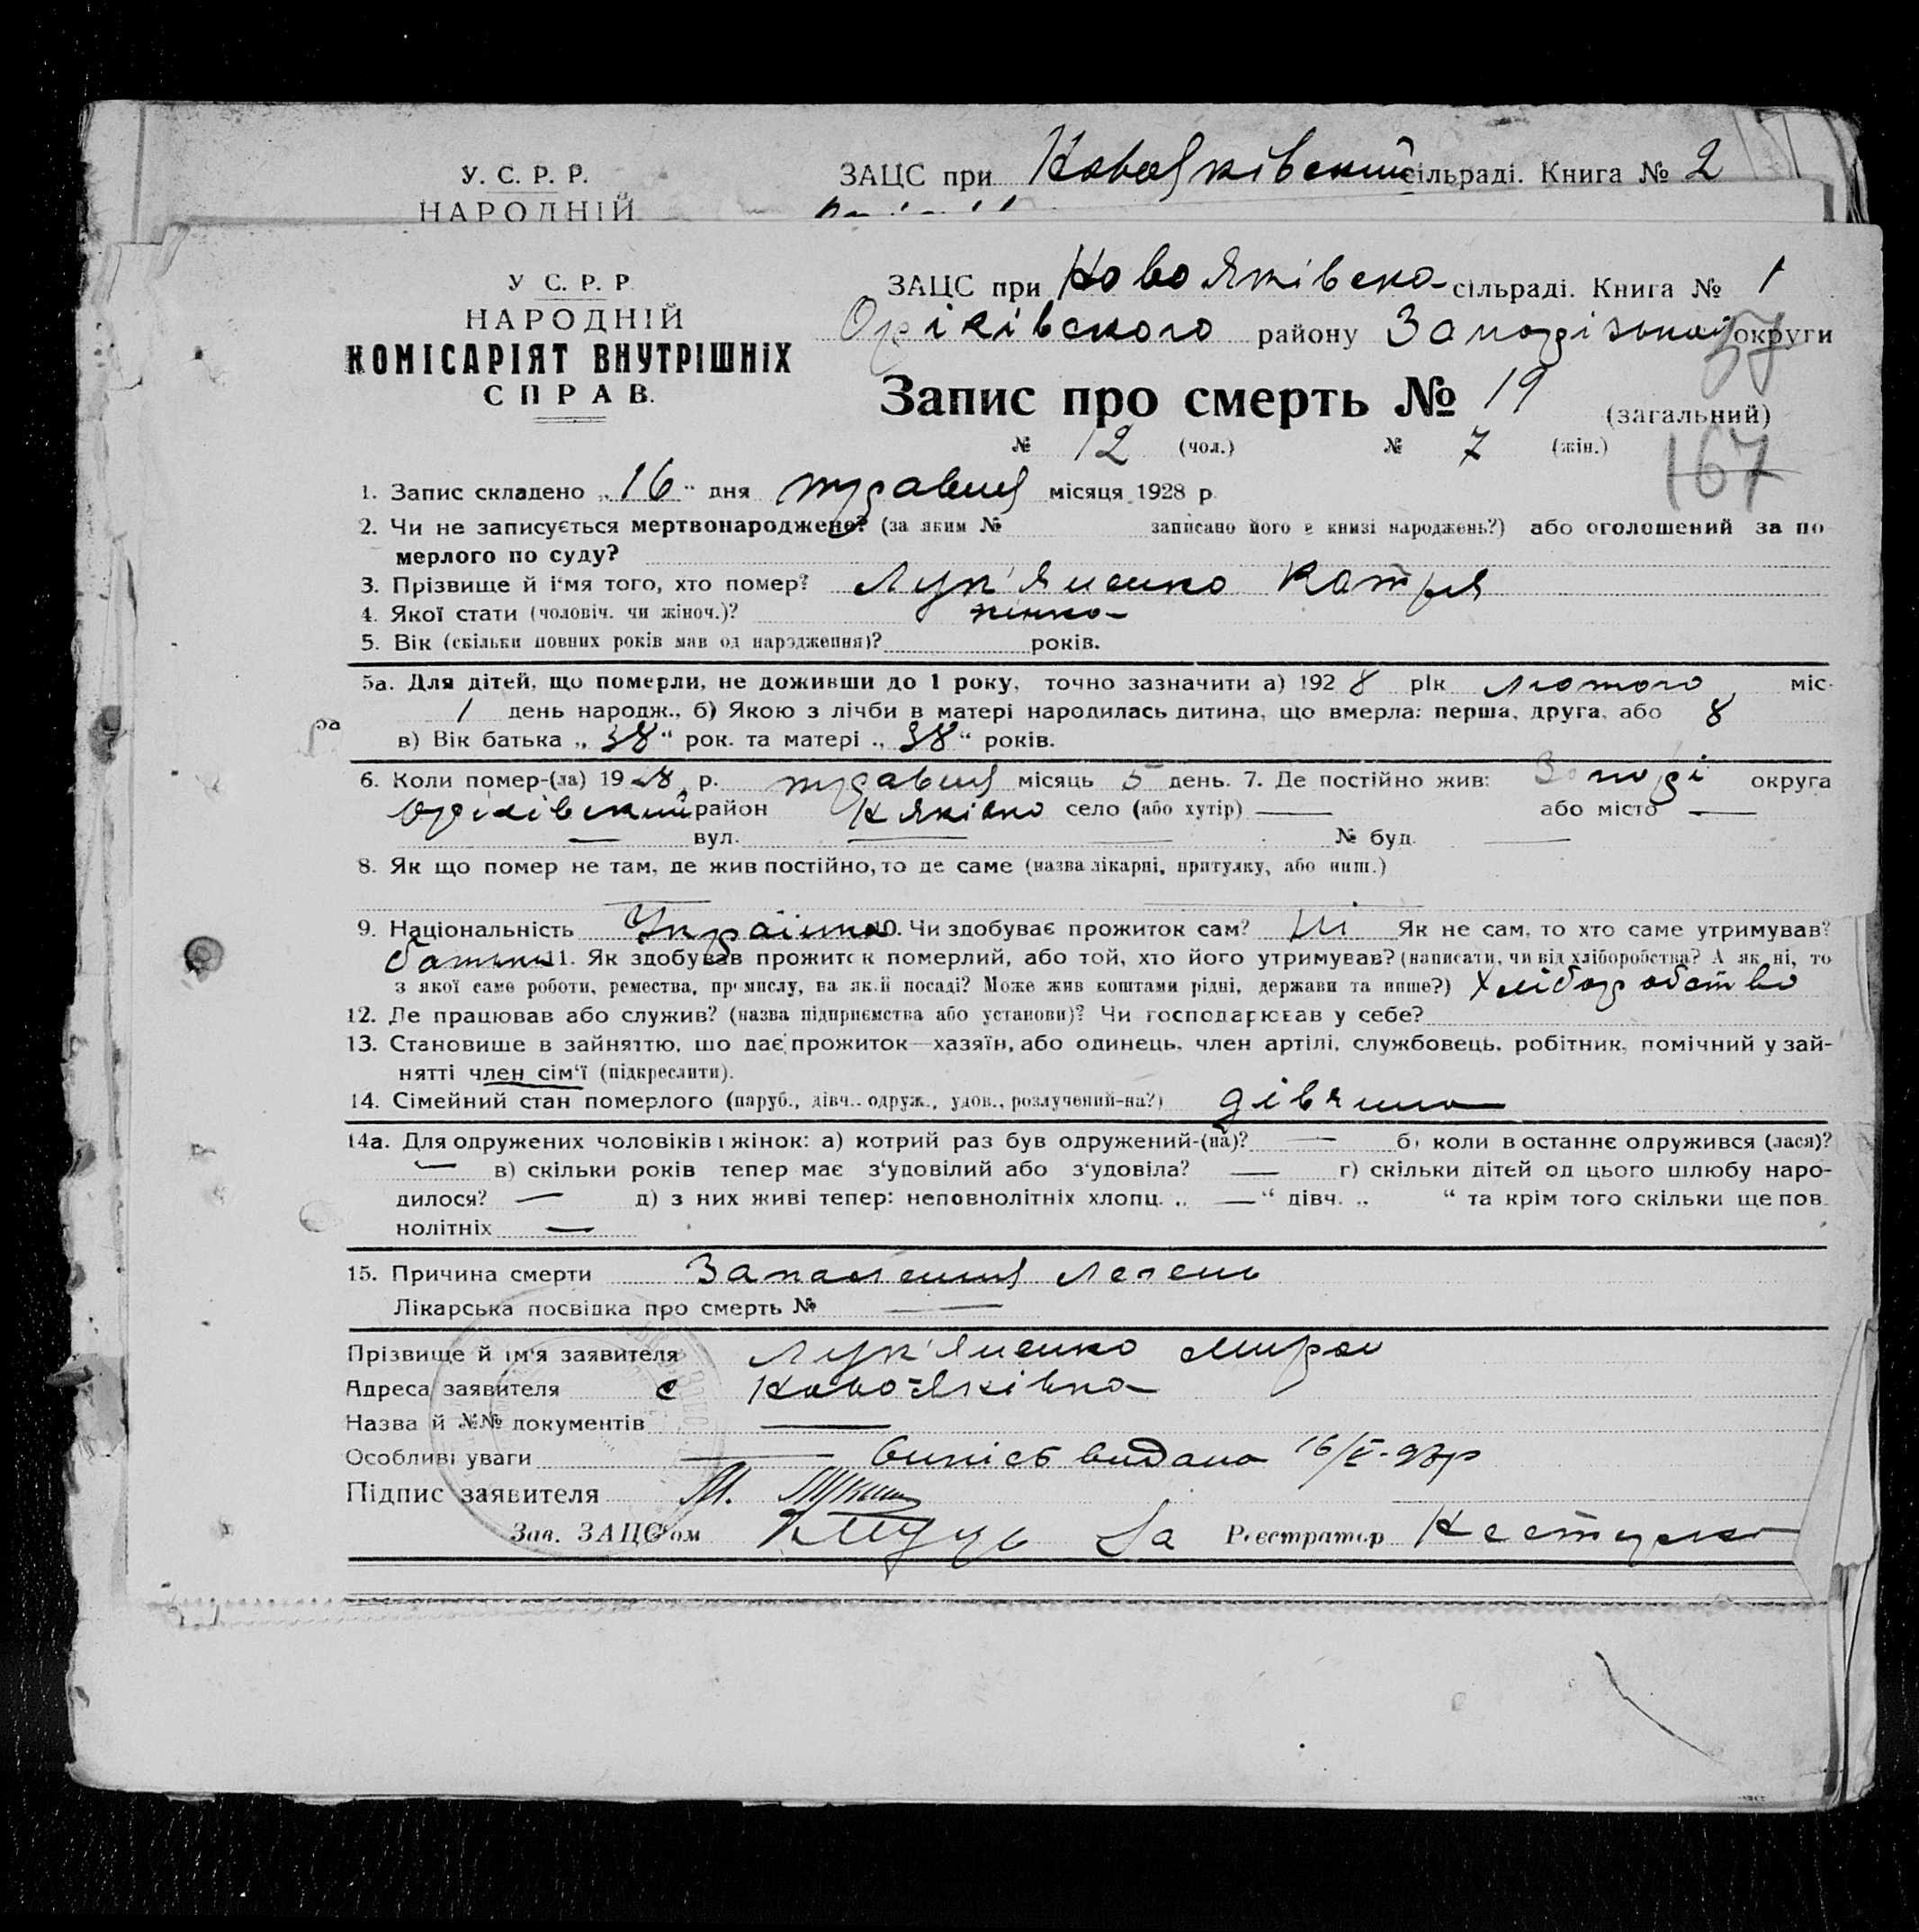 У. С. Р. Р. ЗАЦС при Новояківський сільраді. Книга № 2
НАРОДНІЙ
У С. Р. Р ЗАЦС при Ново Яківська сільраді. Книга № 1
НАРОДНІЙ Оріхівського району Запорізької округи
КОМІСАРІЯТ ВНУТРІШНІХ
СПРАВ.
57
Запис про смерть № 19 (загальний)
№ 12 (чол.) № 7 (жін.)
167
1. Запис складено „16“ дня травня місяця 1928 р.
2. Чи не записується мертвонароджене? (за яким № записано його в книзі народжень?) або оголошений за по
мерлого по суду?
3. Прізвище й ім'я того, хто помер? Лук'яненко Катря
4. Якої стати (чоловіч. чи жіноч.)? жінка
5. Вік (скільки повних років мав од народження)? років.
5а. Для дітей, що померли, не доживши до 1 року, точно зазначити а) 1928 рік лютого міс-
1 день народж., б) Якою з лічби в матері народилась дитина, що вмерла: перша, друга, або 8
ра
в) Вік батька „38“ рок. та матері „38“ років.
6. Коли помер-(ла) 1928 р. травня місяць 5 день. 7. Де постійно жив: Запорі округа
Оріхівський район Н Яківка село (або хутір) — або місто —
— вул. — № буд. —
8. Як що помер не там, де жив постійно, то де саме (назва лікарні, притулку, або инш.)
9. Національність Українка 10. Чи здобуває прожиток сам? Ні Як не сам, то хто саме утримував?
батьки 11. Як здобував прожиток померлий, або той, хто його утримував? (написати, чи від хліборобства? А як ні, то
з якої саме роботи, ремества, промислу, на якій посаді? Може жив коштами рідні, держави та инше?) Хліборобство
12. Де працював або служив? (назва підприємства або установи)? Чи господарював у себе?
13. Становище в зайняттю, що дає прожиток—хазяїн, або одинець, член артілі, службовець, робітник, помічний у зай-
нятті член сім'ї (підкреслити).
14. Сімейний стан померлого (паруб., дівч., одруж., удов., розлучений-на?) дівчина
14а. Для одружених чоловіків і жінок: а) котрий раз був одружений-(на)? — б) коли в останнє одружився (лася)?
— в) скільки років тепер має з'удовілий або з'удовіла? — г) скільки дітей од цього шлюбу наро-
дилося? — д) з них живі тепер: неповнолітніх хлопц. „ —“ дівч. „ “ та крім того скільки ще пов
нолітніх —
15. Причина смерти Запалення легень
Лікарська посвідка про смерть № —
Прізвище й ім'я заявителя Лук'яненко Мирон
Адреса заявителя с Ново-Яківка
Назва й №№ документів —
Особливі уваги — випісь видана 16/V-28р
Підпис заявителя М.
Зав. ЗАЦС'ом За Реєстратор